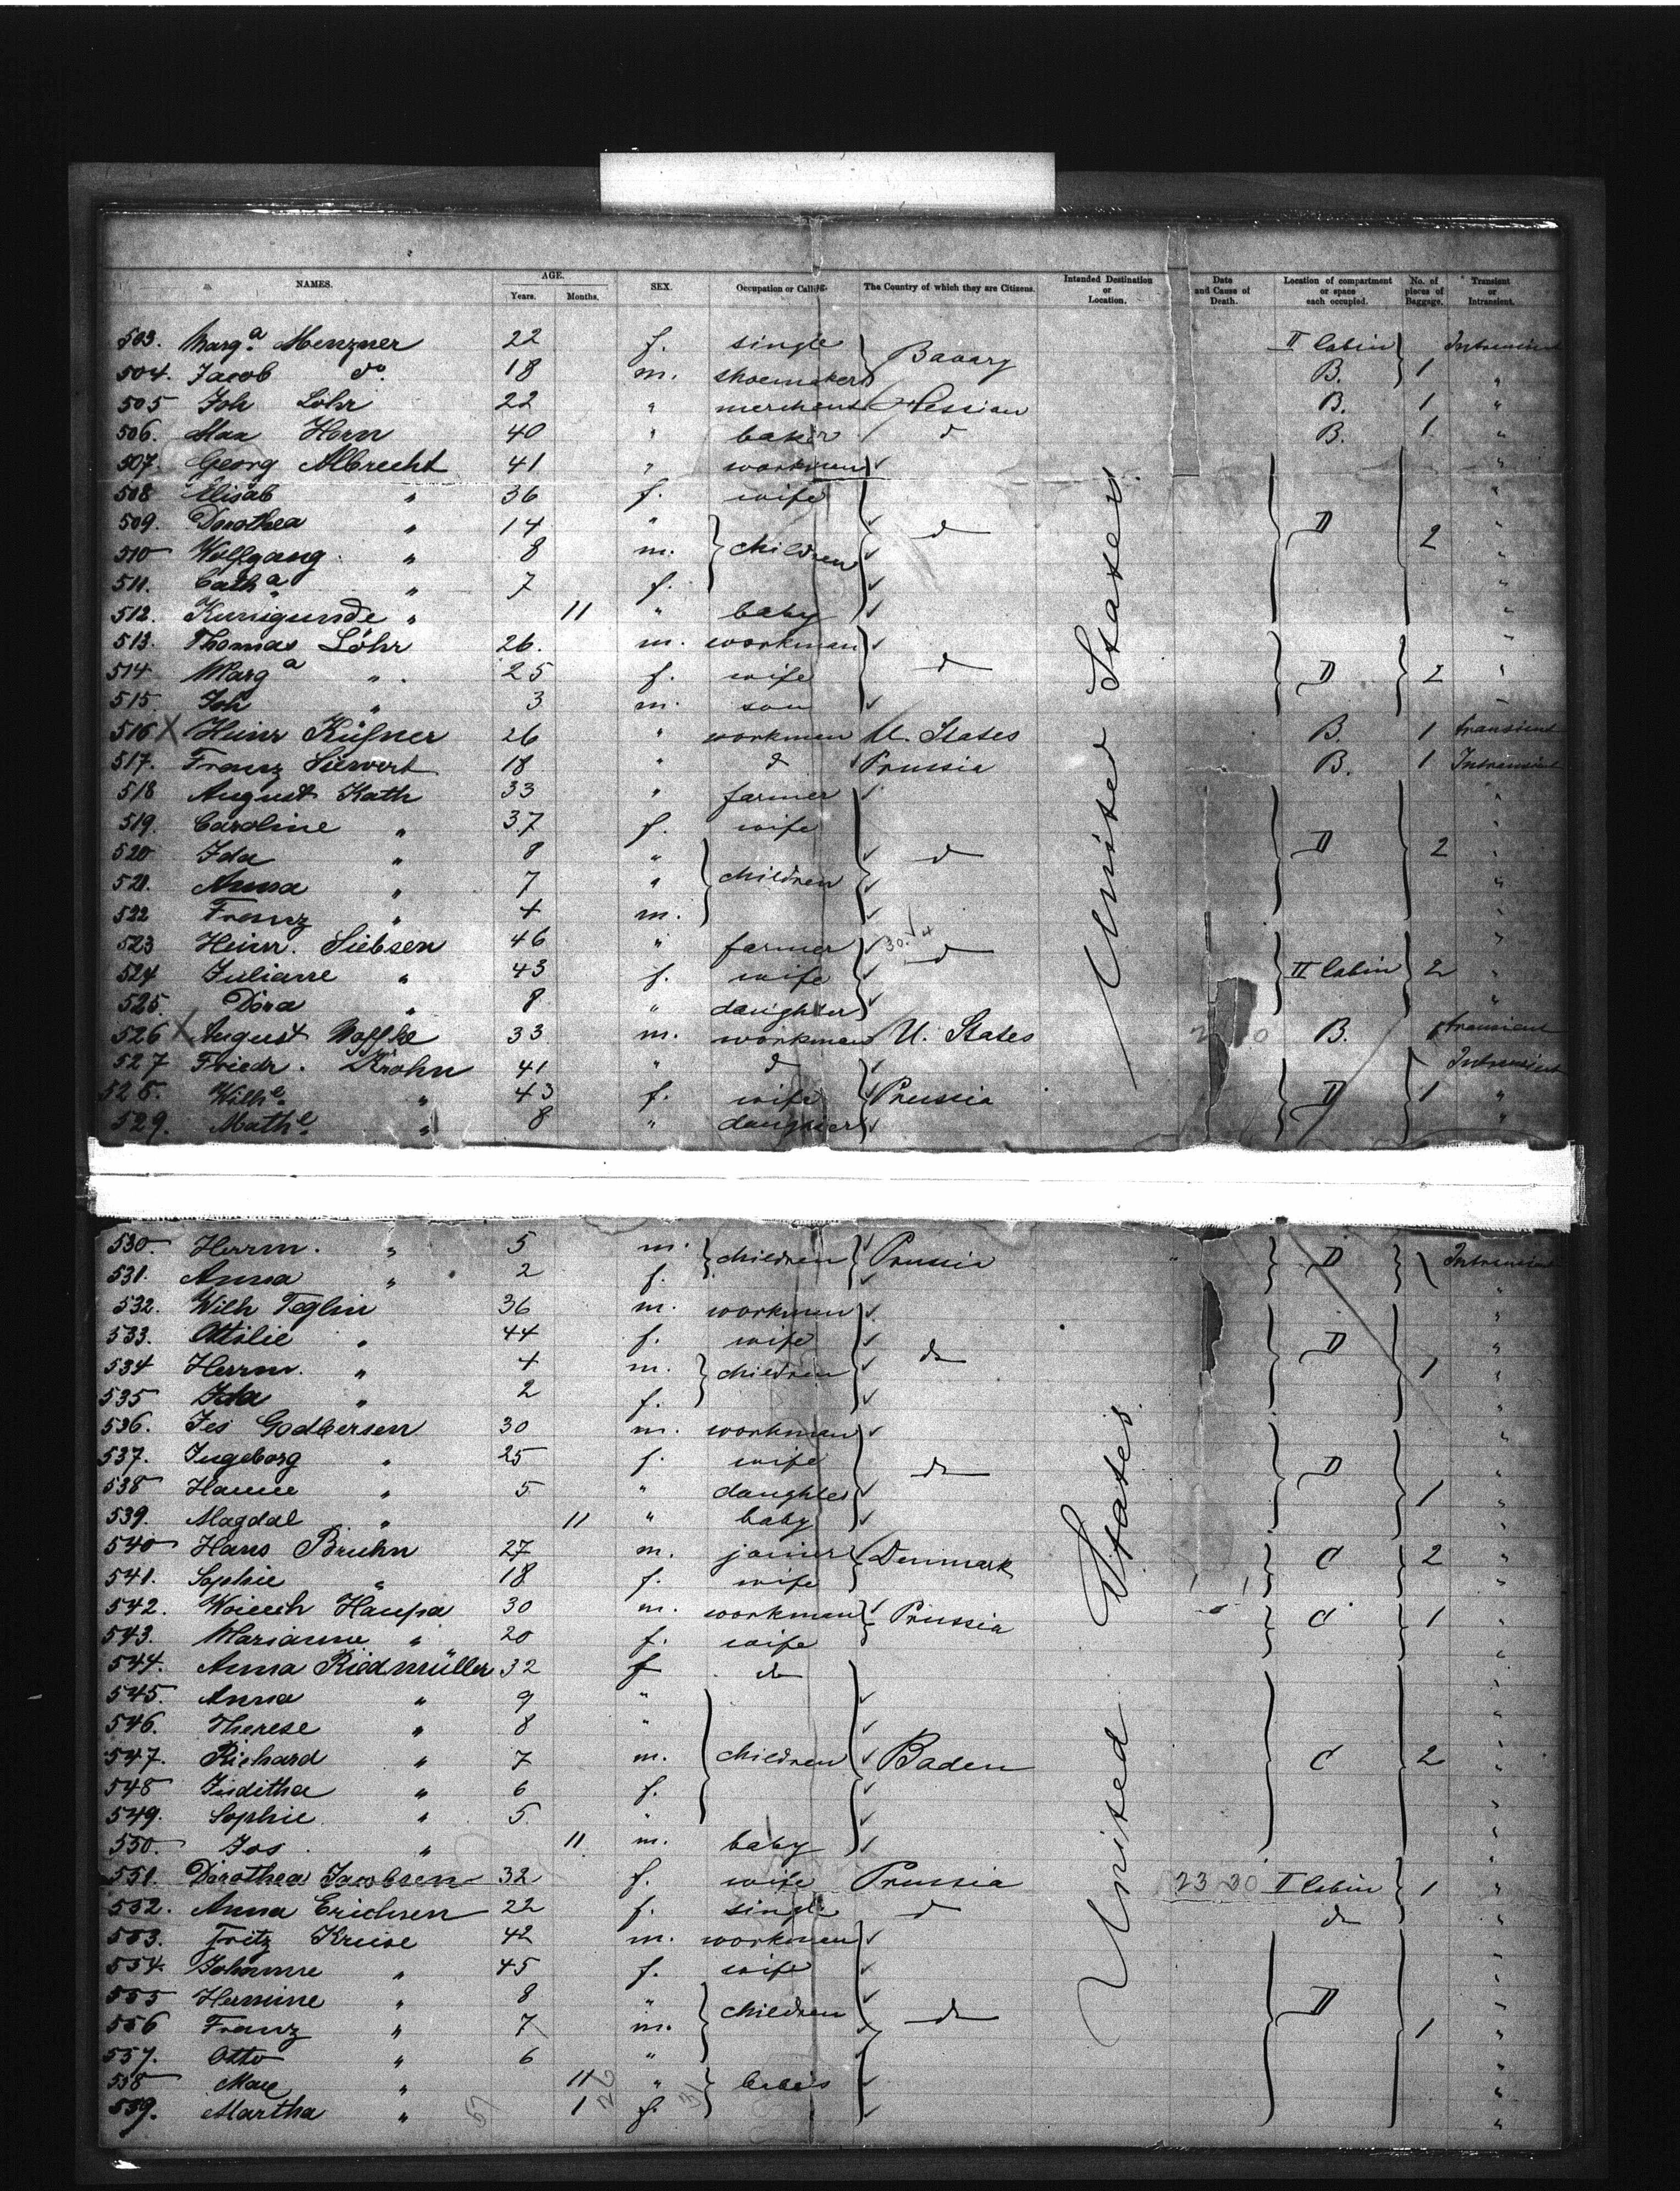 NAMES. AGE. Years. Months. SEX. Occupation or Calling. The Country of which they are Citizens. Intended Destination or Location. Date and Cause of Death. Location of compartment or space each occupied. No. of pieces of Baggage. Transient or Intransient.
503. Marg.a Menzner 22 f. single Bavary II Cabin Intransient
504. Jacob do. 18 m. shoemaker B. 1 "
505 Joh Lohr 22 " merchant Hessian B. 1 "
506. Max Horn 40 " baker d B. 1 "
507. Georg Albrecht 41 " workman "
508 Elisab " 36 f. wife "
509. Dorothea " 14 " children d D "
510 Wolfgang " 8 m. 2 "
511. Cath.a " 7 f. "
512. Kunigunde " 11 " baby "
513. Thomas Löhr 26. m. workman "
514 Marg.a " 25 f. wife d D 2 "
515. Joh " 3 m. son "
516 X Heinr Küfner 26 " workman U. States B. 1 transient
517. Franz Siewert 18 " d Prussia B. 1 Intransient
518 August Kath 33 " farmer "
519. Caroline " 37 f. wife "
520 Ida " 8 " children d D 2 "
521. Anna " 7 " "
522 Franz " 4 m. "
523 Heinr. Siebsen 46 " farmer d "
524 Juliane " 43 f. wife II Cabin 2 "
525. Dora " 8 " daughter "
526 X August 33 m. workman U. States B. 1 transient
527 Friedr. Krohn 41 " d Intransient
528. Wilh.e " 43 f. wife Prussia D 1 "
529. Math.e " 8 " daughter "
530. Herrm. " 5 m. children Prussia D Intransient
531. Anna " 2 f. "
532. Wilh Teglin 36 m. workman "
533. Ottilie " 44 f. wife do D "
534 Herrm. " 4 m. children 1 "
535 Ida " 2 f. "
536. Jes Godbersen 30 m. workman "
537. Ingeborg " 25 f. wife do D "
538 Hanne " 5 " daughter 1 "
539. Magdal " 11 " baby "
540 Hans Bruhn 27 m. joiner Denmark C 2 "
541. Sophie " 18 f. wife "
542. Woicech Haupa 30 m. workman Prussia C 1 "
543. Marianne " 20 f. wife "
544. Anna Riedmüller 32 f do "
545. Anna " 9 " "
546. Therese " 8 " "
547. Richard " 7 m. children Baden C 2 "
548 Juditha " 6 f. "
549. Sophie " 5 " "
550. Jos " 11 m. baby "
551. Dorothea Jacobsen 32 f. wife Prussia II Cabin 1 "
552. Anna Erichsen 22 f. single d do "
553. Fritz Kruse 42 m. workman "
554. Johanne " 45 f. wife "
555 Hermine " 8 " children do D "
556 Franz " 7 m. 1 "
557. Otto " 6 " "
558 Max " 11 " "
559. Martha " 1 f. "
United States
United States